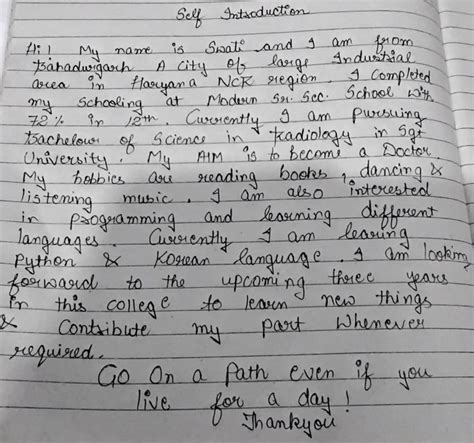 Self Introduction
Hi! My name is Swati and I am from
Bahadurgarh A city of large Industrial
area in Haryana NCR region. I Completed
my Schooling at Modern Sr. Sec. School with
72% in 12th. Currently I am Pursuing
Bachelour of Science in Radiology in Sgt
University. My AIM is to become a Doctor.
My hobbies are reading books, dancing &
listening music. I am also interested
in programming and learning different
languages. Currently I am learing
Python & Korean language. I am looking
forward to the upcoming three years
in this college to learn new things
& Contribute my part whenever
required.
Go On a Path even if you
live for a day!
Thankyou